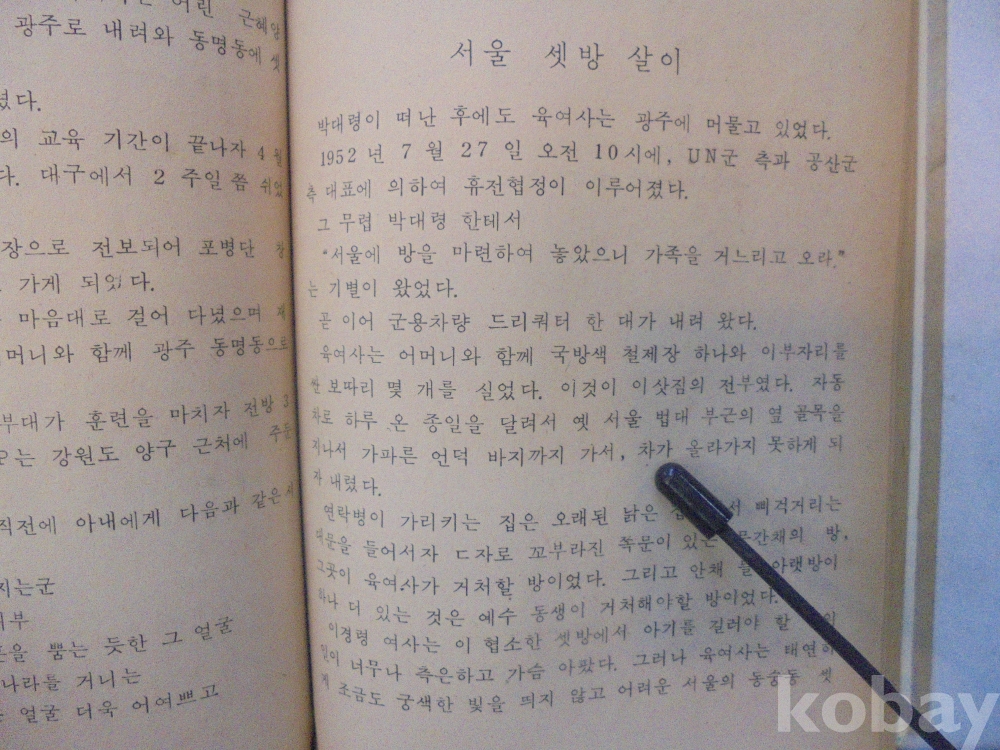 어린 근혜양
광주로 내려와 동명동에 셋
였다.
의 교육 기간이 끝나자 4월
다. 대구에서 2 주일쯤 쉬었
장으로 전보되어 포병단 창
가게 되었다.
마음대로 걸어 다녔으며 재
머니와 함께 광주 동명동으로
부대가 훈련을 마치자 전방 3
는 강원도 양구 근처에 주둔
직전에 아내에게 다음과 같은 시
지는군
을 뿜는 듯한 그 얼굴
나라를 거니는
얼굴 더욱 어여쁘고
서울 셋방 살이
박대령이 떠난 후에도 육여사는 광주에 머물고 있었다.
1952 년 7 월 27 일 오전 10 시에, UN군 측과 공산군
측 대표에 의하여 휴전협정이 이루어졌다.
그 무렵 박대령 한테서
“서울에 방을 마련하여 놓았으니 가족을 거느리고 오라.”
는 기별이 왔었다.
곧 이어 군용차량 드리쿼터 한 대가 내려 왔다.
육여사는 어머니와 함께 국방색 철제장 하나와 이부자리를
싼 보따리 몇 개를 실었다. 이것이 이삿짐의 전부였다. 자동
차로 하루 온 종일을 달려서 옛 서울 법대 부근의 옆 골목을
지나서 가파른 언덕 바지까지 가서, 차가 올라가지 못하게 되
자 내렸다.
연락병이 가리키는 집은 오래된 낡은 서 삐걱거리는
대문을 들어서자 ㄷ자로 꼬부라진 쪽문이 있는 문간채의 방,
그곳이 육여사가 거처할 방이었다. 그리고 안채 아랫방이
하나 더 있는 것은 예수 동생이 거처해야할 방이었다.
이경령 여사는 이 협소한 셋방에서 아기를 길러야 할
일이 너무나 측은하고 가슴 아팠다. 그러나 육여사는 태연하
게 조금도 궁색한 빛을 띄지 않고 어려운 서울의 동숭동 셋
kobay